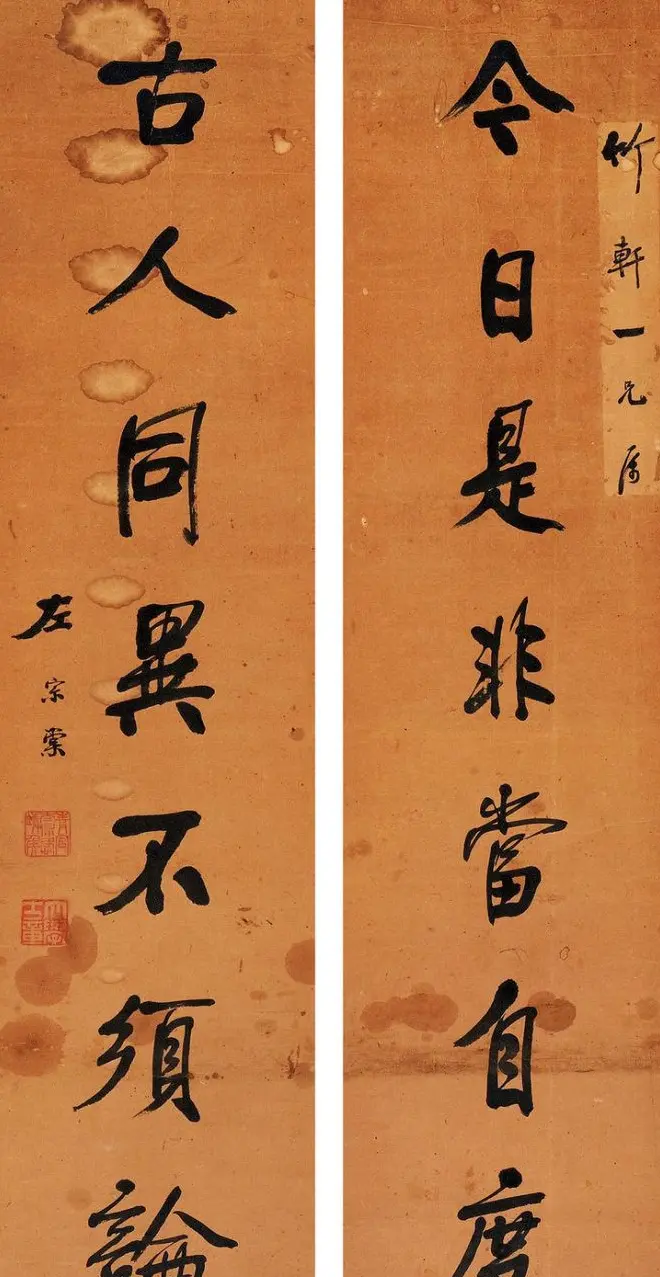 竹軒一兄属
今日是非當自度
古人同異不須論
左宗棠